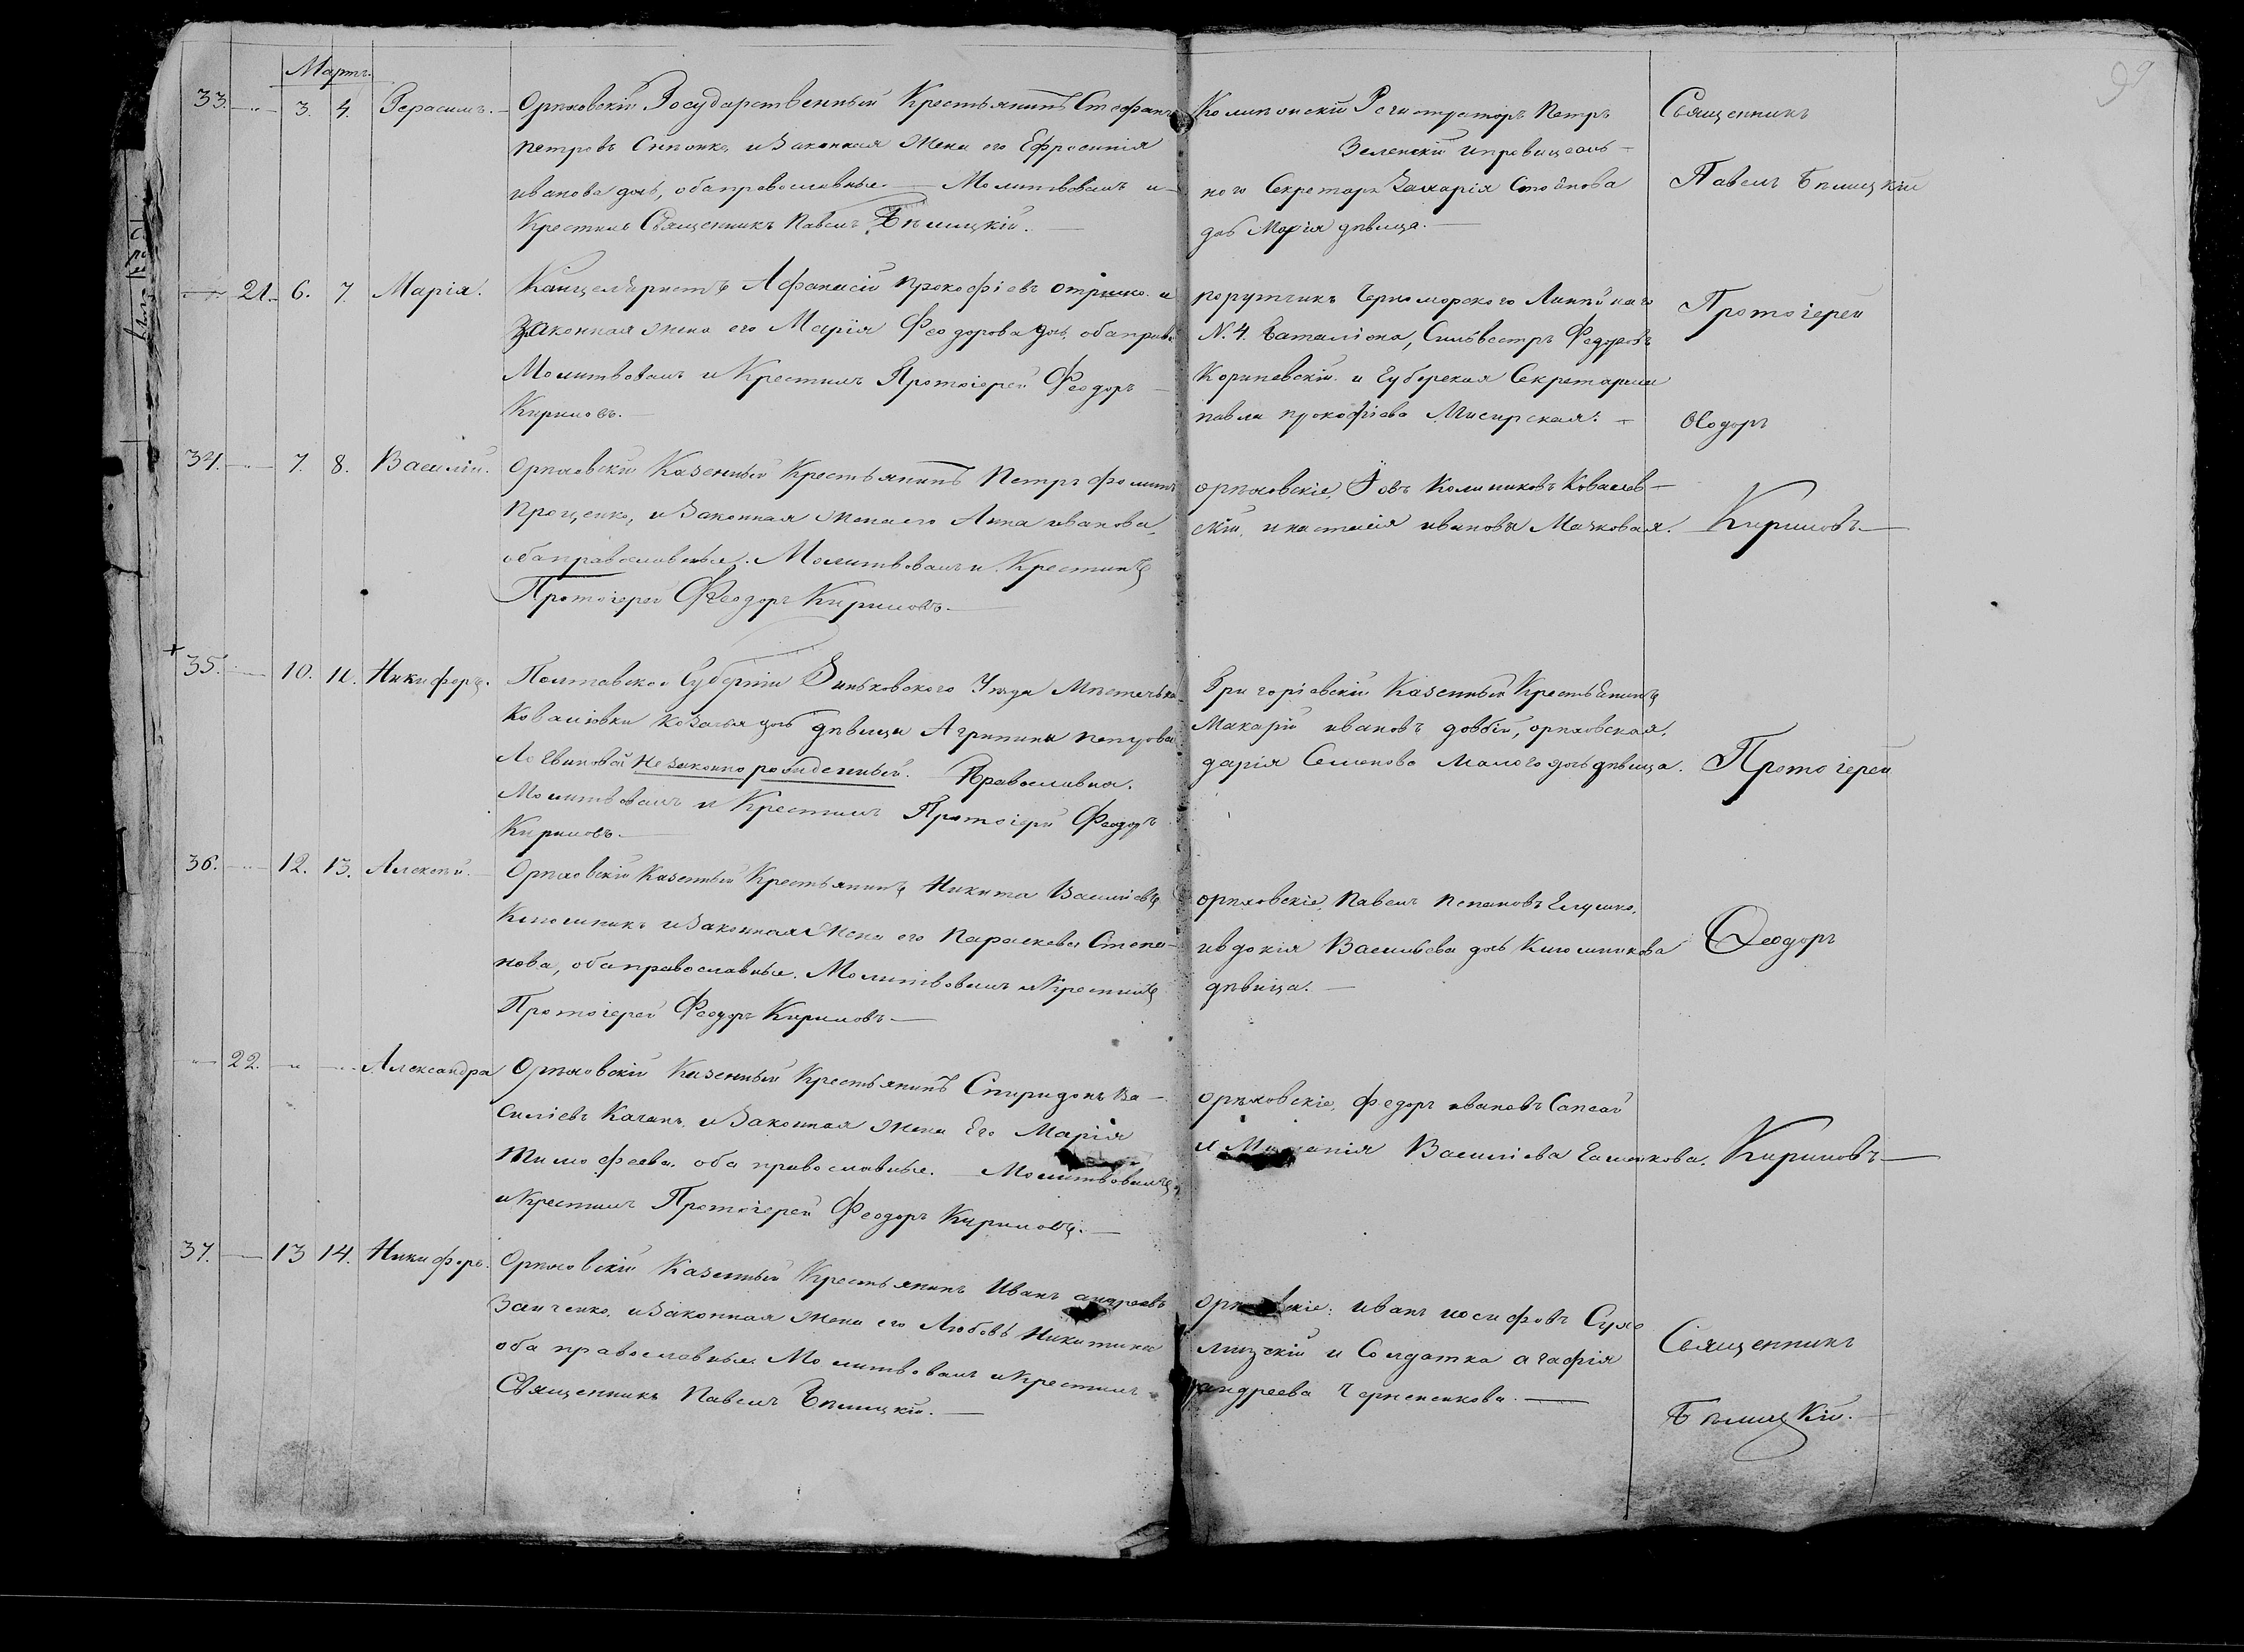 99
Мартъ.
33. 3. 4. Герасимъ. Орѣховскій Государственный Крестьянинъ Стефанъ
Петровъ и Законная Жена его Ефросинія
иванова дочь, обаправославные. — Молитвовалъ и
Крестилъ Священникъ Павелъ Бѣлицкій. —
Колежскій Регистраторъ Петръ
Зеленскій
ного Секретаря Захарія Стойнова
дочь Марія дѣвица. —
Священникъ
Павелъ Бѣлицкій
21. 6. 7. Марія. Канцеляристъ Афанасій Прокофіевъ Отришко и
Законная жена его Марія Феодорова дочь, обаправо
Молитвовалъ и Крестилъ Протоіерей Феодоръ —
Кириловъ. —
порутчикъ Черноморского Линѣйнаго
N. 4. Баталіона, Сильвестръ Федоровъ
и Губерская Секретарша
павла прокофіева Мисирская. —
Протоіерей
Ѳеодоръ
Кириловъ —
34. 7. 8. Василій. Орѣховскій Казенный Крестьянинъ Петръ Фоминъ
Проценко, и Законная жена его Анна иванова,
обаправославные. Молитвовалъ и Крестилъ
Протоіерей Феодоръ Кириловъ. —
орѣховскіе, Іовъ Ковалев-
скій, и настасія иванова Мачковая.
35. 10. 11. Никифоръ. Полтавской Губерніи Зиньковского Уѣзда Мѣстечка
Ковалювки козачья дочь дѣвица Агрипина петрова
Логвиновой Незаконно рожденный. Православна.
Молитвовалъ и Крестилъ Протоіерй Феодоръ
Кириловъ. —
Григоріевскій Казенный Крестьянинъ
Макарій ивановъ довбій, орѣховская,
дарія Семенова Малого дочь дѣвица.
Протоіерей
36. 12. 13. Алексѣй. Орѣховскій Казенный Крестьянинъ Никита Василіевъ
Клюшникъ и Законная Жена его Параскева Степа-
нова, обаправославные. Молитвовалъ и Крестилъ
Протоіерей Феодоръ Кириловъ —
орѣховскіе, Павелъ Елушко,
ивдокія Васильева дочь Клюшникова
дѣвица. —
Ѳеодоръ
22. Александра Орѣховскій Казенный Крестьянинъ Спиридонъ Ва-
силіевъ Качанъ, и Законная жена Его Марія
Тимофеева, оба православные. — Молитвовалъ
и Крестилъ Протоіерей Феодоръ Кириловъ. —
орѣховскіе, Федоръ ивановъ Сапсай
и Василіева
Кириловъ —
37. 13 14. Никифоръ. Орѣховскій Казенный Крестьянинъ Иванъ андреевъ
Заиченко, и Законная жена его Любовь Никитина
оба православные. Молитвовалъ и Крестилъ
Священникъ Павелъ Бѣлицкій. —
иванъ иосифовъ Сухо
млизскій и Солдатка агафія
андреева Черненкова. —
Священникъ
Бѣлицкій. —